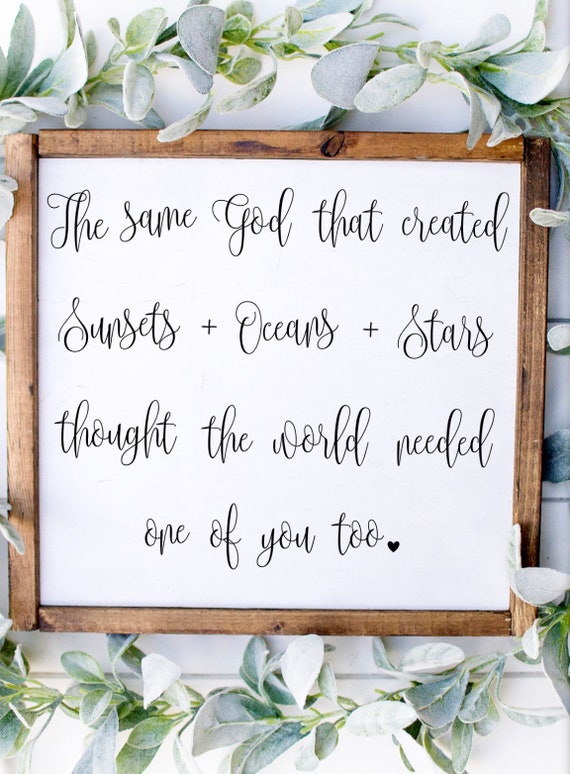 The same God that created
Sunsets + Oceans + Stars
thought the world needed
one of you too.♥